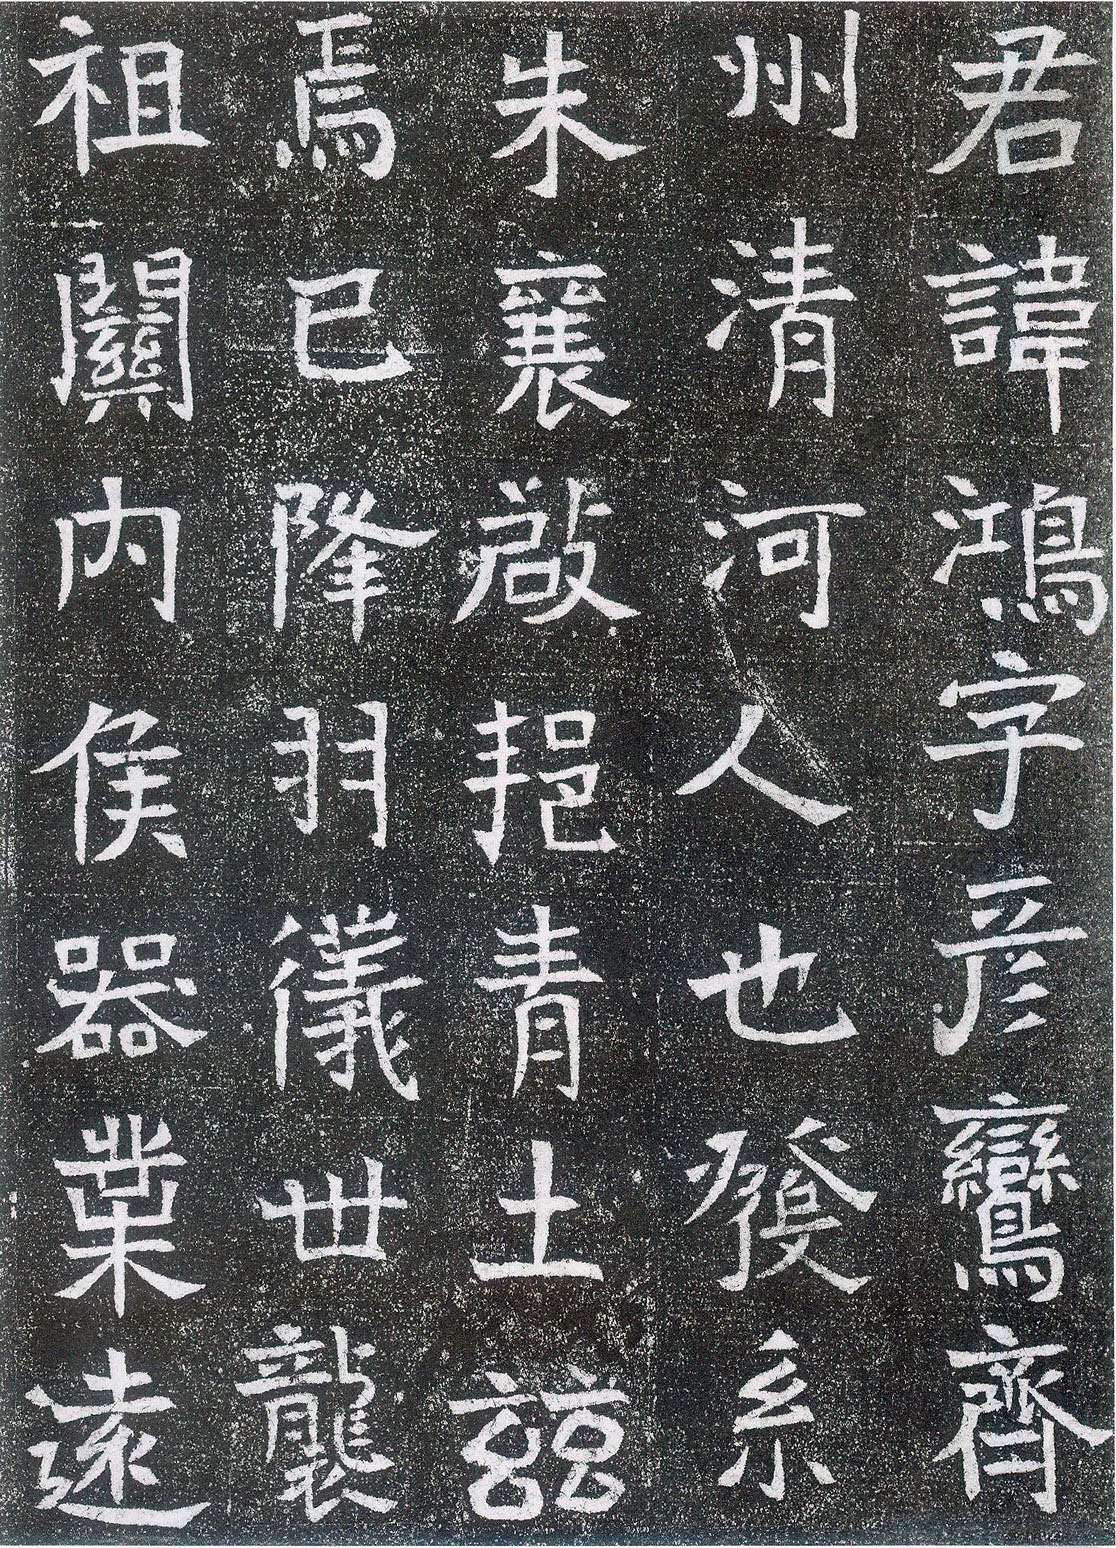 君諱鴻字彦鸞齊
州清河人也發系
朱襄啟挹青土玆
焉已降羽儀世襲
祖關内侯器業遠